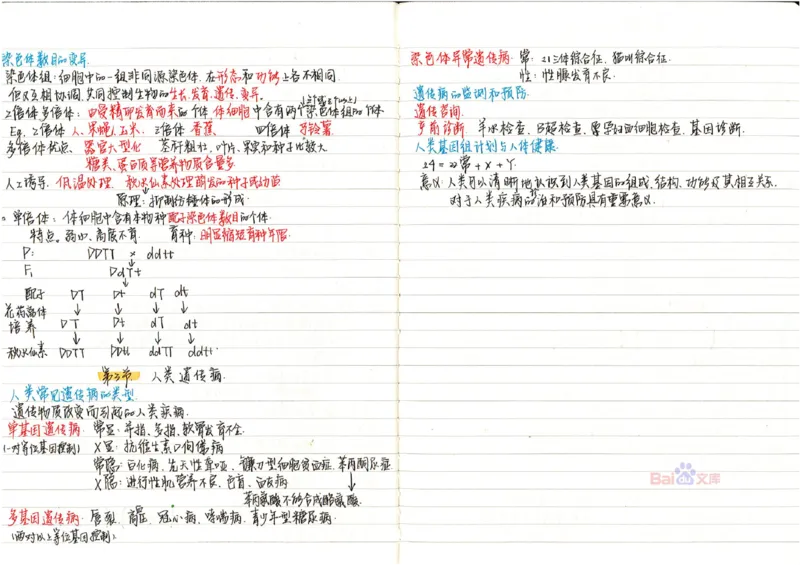 染色体数目的变异
染色体组：细胞中的一组非同源染色体，在形态和功能上各不相同
但又互相协调，共同控制生物的生长、发育、遗传、变异。
二倍体多倍体：由受精卵发育而来的个体，体细胞中含有两个(三个或三个以上)染色体组的个体
Eg. 二倍体 人、果蝇、玉米、 三倍体 香蕉 四倍体 马铃薯
多倍体优点：器官大型化 茎秆粗壮，叶片、果实和种子比较大
糖类、蛋白质等营养物质含量多
人工诱导：低温处理 秋水仙素处理萌发的种子或幼苗
原理：抑制纺锤体的形成
。单倍体：体细胞中含有本物种配子染色体数目的个体
特点：弱小、高度不育 育种：明显缩短育种年限
P： DDTT × ddtt
F₁ DdTt
配子 DT Dt dT dt
花药离体
培养 DT Dt dT dt
秋水仙素 DDTT DDtt ddTT ddtt
第3节 人类遗传病
人类常见遗传病的类型
遗传物质改变而引起的人类疾病
单基因遗传病 常显：并指、多指、软骨发育不全
(一对等位基因控制) X显：抗维生素D佝偻病
常隐：白化病、先天性聋哑、镰刀型细胞贫血症、苯丙酮尿症
X隐：进行性肌营养不良、色盲、血友病
苯丙氨酸不能合成酪氨酸
多基因遗传病：唇裂、高压、冠心病、哮喘病、青少年型糖尿病
(两对以上等位基因控制)
染色体异常遗传病 常：21三体综合征、猫叫综合征
性：性腺发育不良
遗传病的监测和预防
遗传咨询
产前诊断 羊水检查、B超检查、孕妇血细胞检查、基因诊断
人类基因组计划与人体健康
24 = 22常 + X + Y
意义：人类可以清晰地认识到人类基因的组成、结构、功能及其相互关系，
对于人类疾病的诊治和预防具有重要意义
Baidu文库